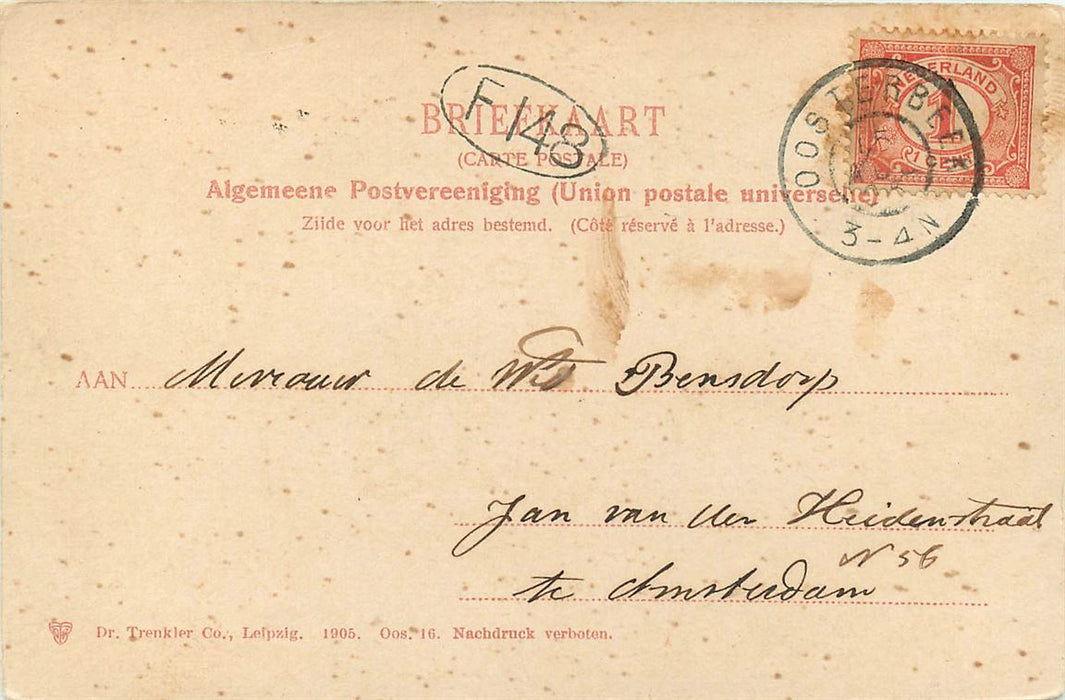 NEDERLAND
1
1 CENT
OOSTERBEEK
3-4N
F 148
BRIEFKAART
(CARTE POSTALE)
Algemeene Postvereeniging (Union postale universelle)
Zijde voor het adres bestemd. (Côté réservé à l'adresse.)
AAN Mevrouw de Wed Bensdorp
Jan van der Heidenstraat
N 56
te Amsterdam
Dr. Trenkler Co., Leipzig. 1905. Oos. 16. Nachdruck verboten.